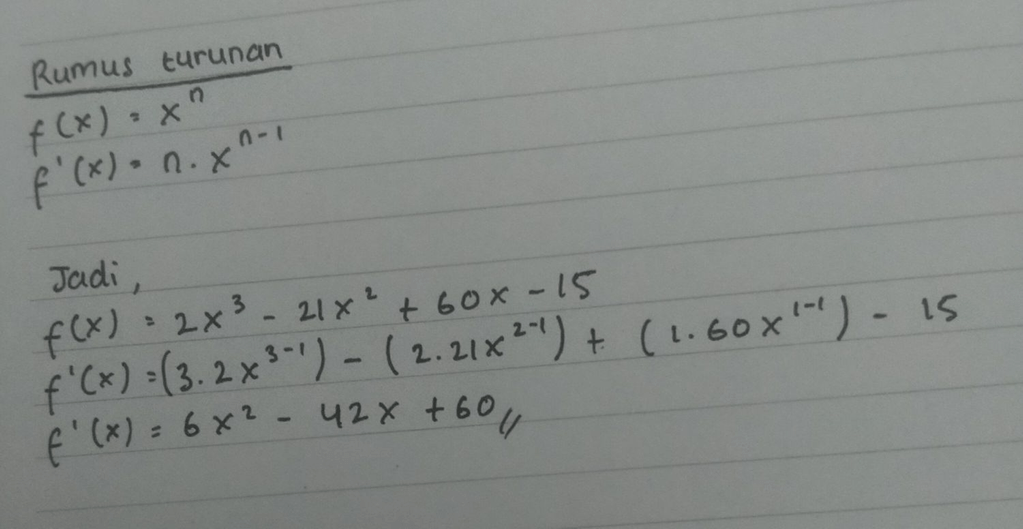 Rumus turunan
f(x) = xⁿ
f'(x) = n. xⁿ⁻¹
Jadi,
f(x) = 2x³ - 21x² + 60x - 15
f'(x) = (3. 2x³⁻¹) - (2. 21x²⁻¹) + (1. 60x¹⁻¹) - 15
f'(x) = 6x² - 42x + 60//